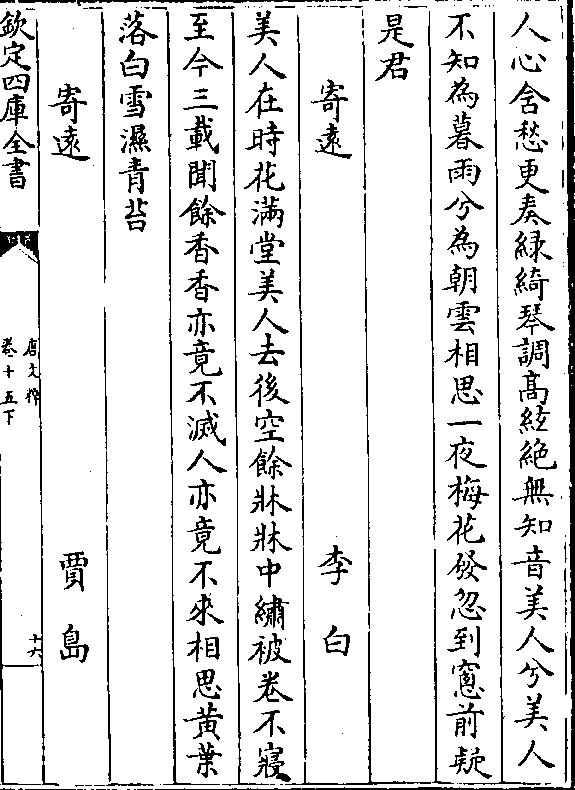 人心含愁更奏緑綺琴調髙絃絶無知音美人兮美人
不知為暮雨兮為朝雲相思一夜梅花發忽到窻前疑
是君
寄遠 李白
美人在時花滿堂美人去後空餘牀牀中繡被卷不寢
至今三載聞餘香香亦竟不滅人亦竟不來相思黄葉
落白雪濕青苔
寄遠 賈島
欽定四庫全書 唐文粹 卷十五下 十六